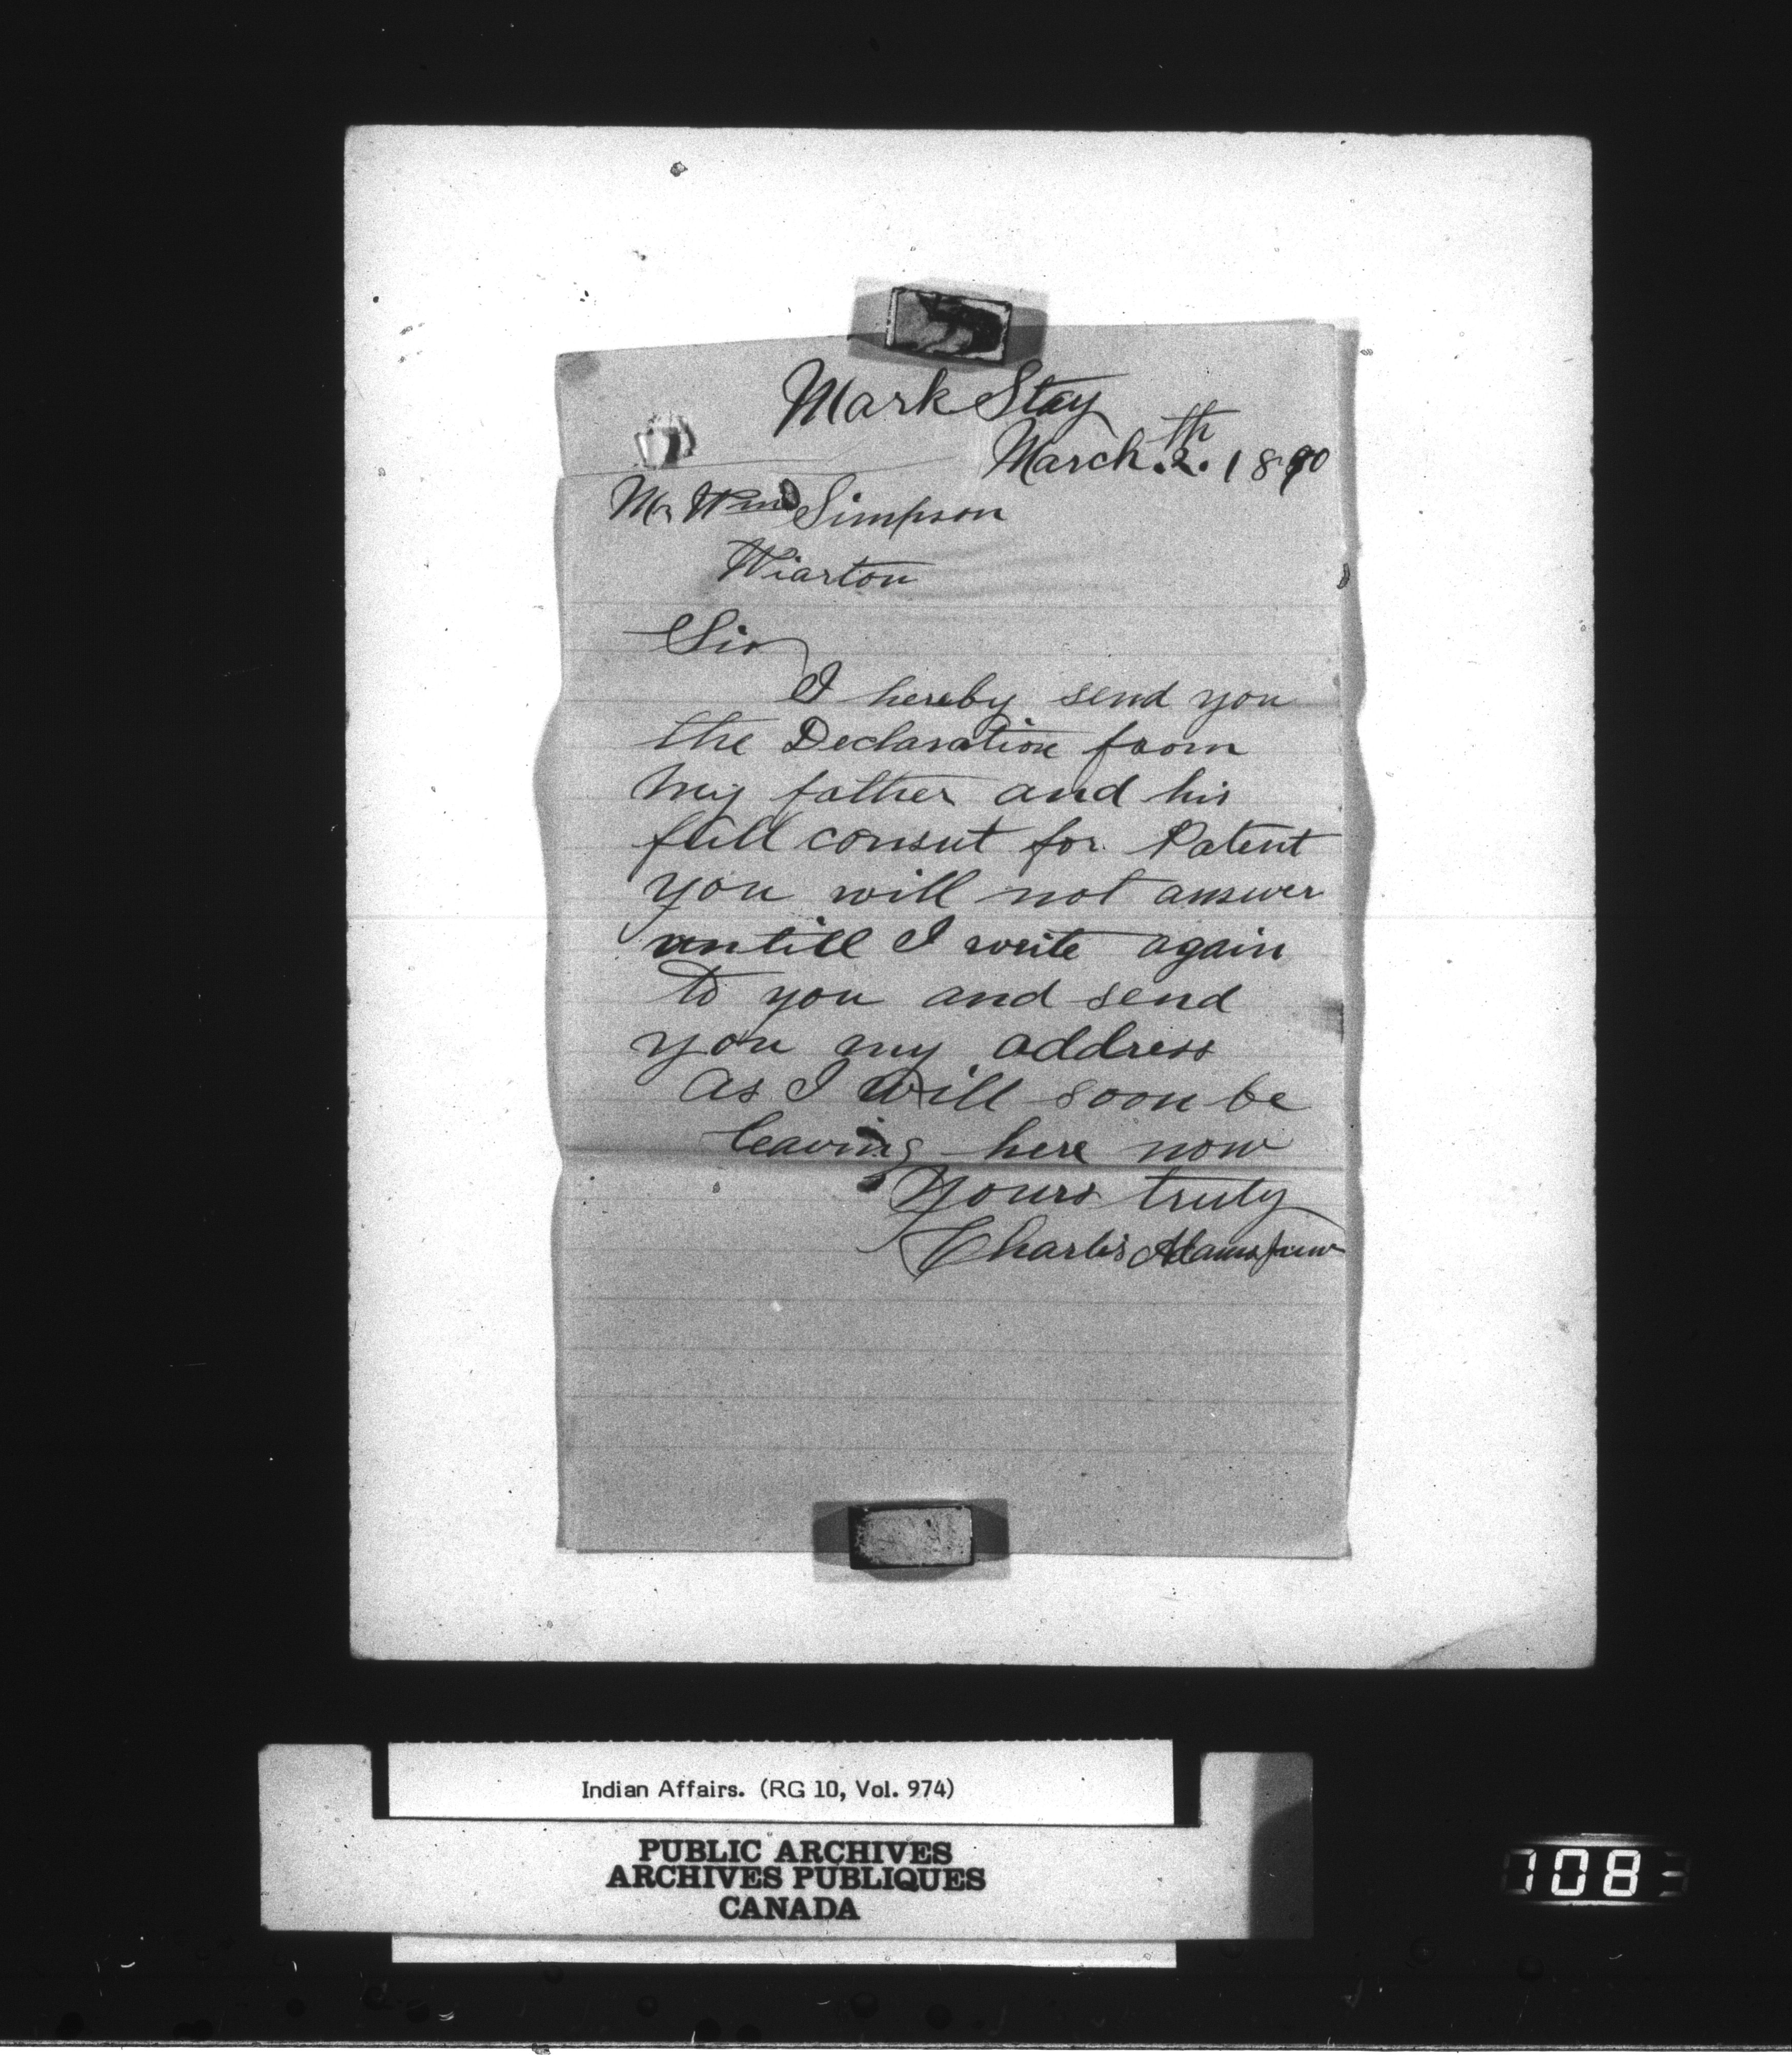 Mark Stay
March .2.th 1890
Mr Wm Simpson
Wiarton
Sir
I hereby send you
the Declaration from
my father and his
full consut for Patent
you will not answer
untill I write again
to you and send
you my address
as I will soon be
leaving here now
Yours truly
Charles Adams
Indian Affairs. (RG 10, Vol. 974)
PUBLIC ARCHIVES
ARCHIVES PUBLIQUES
CANADA
1083